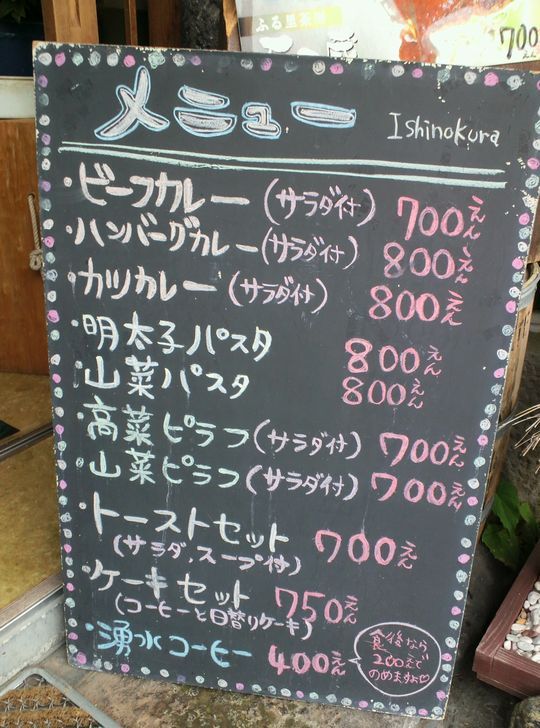 ふる里茶屋
700えん
メニュー
Ishinokura
・ビーフカレー(サラダ付) 700えん
・ハンバーグカレー(サラダ付) 800えん
・カツカレー(サラダ付) 800えん
・明太子パスタ 800えん
・山菜パスタ 800えん
・高菜ピラフ(サラダ付) 700えん
・山菜ピラフ(サラダ付) 700えん
・トーストセット 700えん
(サラダ、スープ付)
・ケーキセット 750えん
(コーヒーと日替りケーキ)
・湧水コーヒー 400えん
食後なら
200えんで
のめますよ♡